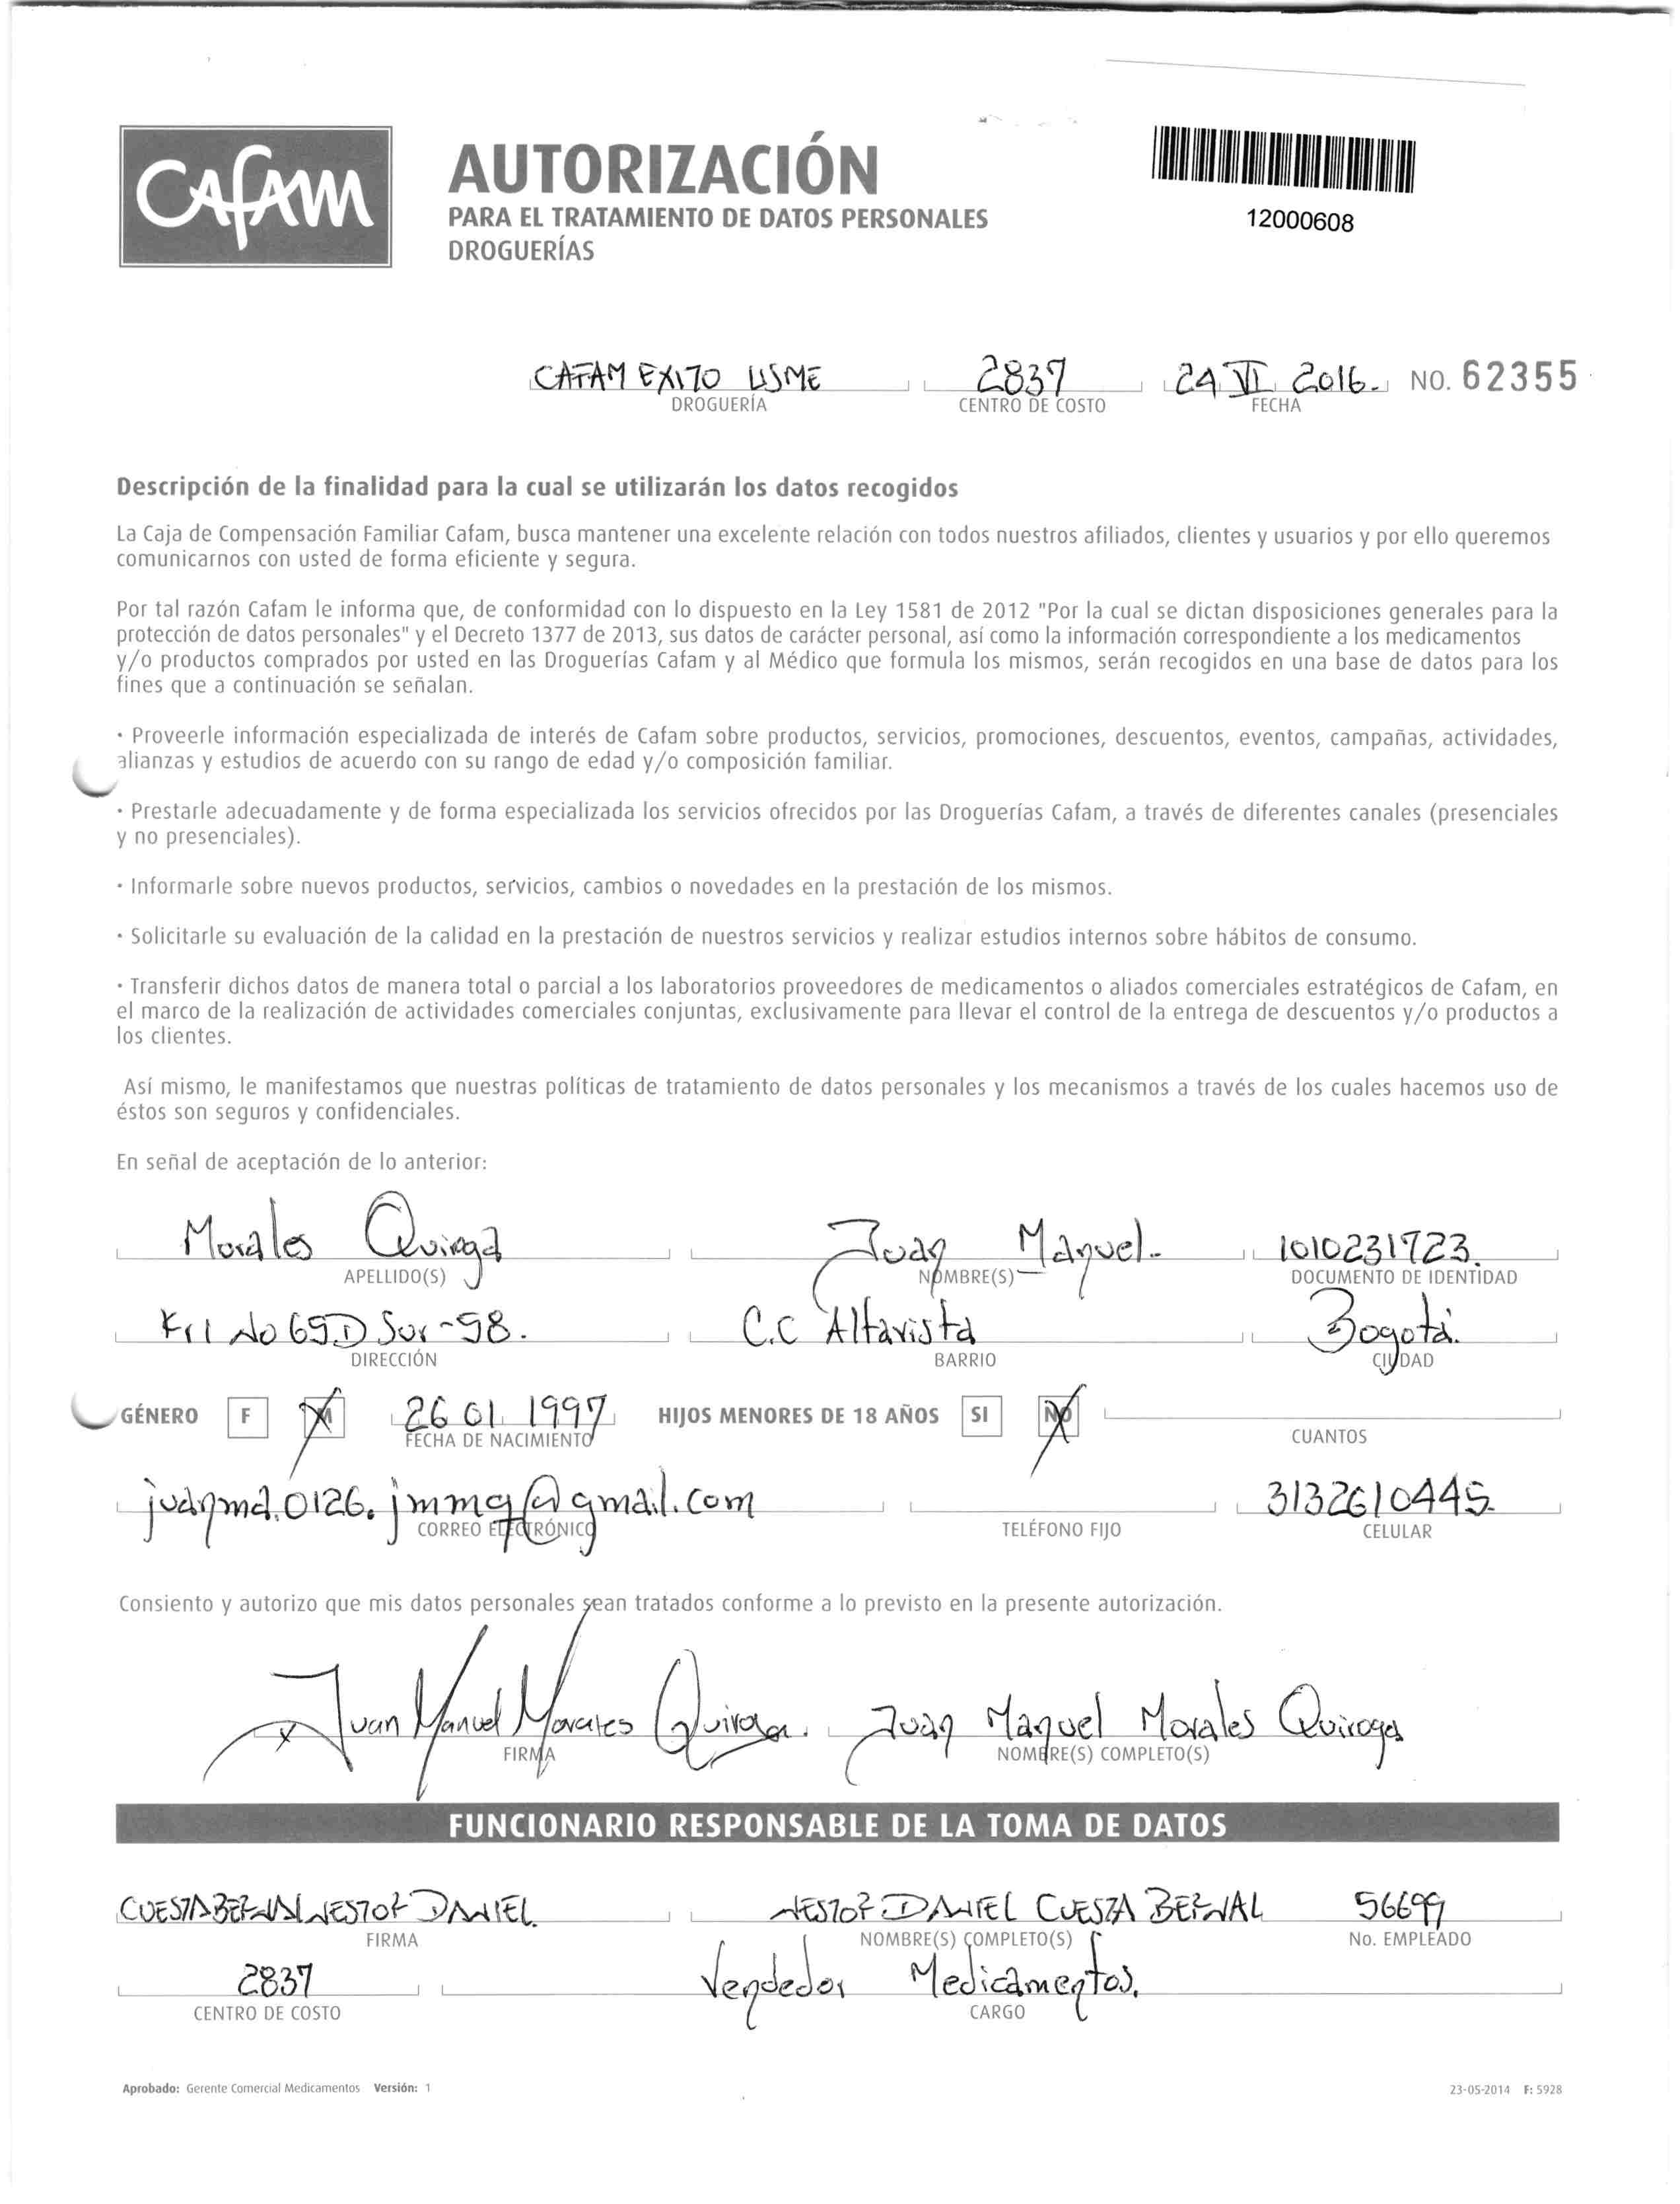 CAFAM
AUTORIZACIÓN
PARA EL TRATAMIENTO DE DATOS PERSONALES
DROGUERÍAS
12000608
CAFAM EXITO USME 2837 24 VI 2016. NO. 62355
DROGUERÍA CENTRO DE COSTO FECHA
Descripción de la finalidad para la cual se utilizarán los datos recogidos
La Caja de Compensación Familiar Cafam, busca mantener una excelente relación con todos nuestros afiliados, clientes y usuarios y por ello queremos
comunicarnos con usted de forma eficiente y segura.
Por tal razón Cafam le informa que, de conformidad con lo dispuesto en la Ley 1581 de 2012 "Por la cual se dictan disposiciones generales para la
protección de datos personales" y el Decreto 1377 de 2013, sus datos de carácter personal, así como la información correspondiente a los medicamentos
y/o productos comprados por usted en las Droguerías Cafam y al Médico que formula los mismos, serán recogidos en una base de datos para los
fines que a continuación se señalan.
· Proveerle información especializada de interés de Cafam sobre productos, servicios, promociones, descuentos, eventos, campañas, actividades,
alianzas y estudios de acuerdo con su rango de edad y/o composición familiar.
· Prestarle adecuadamente y de forma especializada los servicios ofrecidos por las Droguerías Cafam, a través de diferentes canales (presenciales
y no presenciales).
· Informarle sobre nuevos productos, servicios, cambios o novedades en la prestación de los mismos.
· Solicitarle su evaluación de la calidad en la prestación de nuestros servicios y realizar estudios internos sobre hábitos de consumo.
· Transferir dichos datos de manera total o parcial a los laboratorios proveedores de medicamentos o aliados comerciales estratégicos de Cafam, en
el marco de la realización de actividades comerciales conjuntas, exclusivamente para llevar el control de la entrega de descuentos y/o productos a
los clientes.
Así mismo, le manifestamos que nuestras políticas de tratamiento de datos personales y los mecanismos a través de los cuales hacemos uso de
éstos son seguros y confidenciales.
En señal de aceptación de lo anterior:
Morales Quiroga Juan Manuel. 1010231723.
APELLIDO(S) NOMBRE(S) DOCUMENTO DE IDENTIDAD
Kr 1 No 65 D Sur -58. C.C Altavista Bogotá.
DIRECCIÓN BARRIO CIUDAD
GÉNERO F M 26 01 1997 HIJOS MENORES DE 18 AÑOS SI NO
FECHA DE NACIMIENTO CUANTOS
juanma.0126.jmmq@gmail.com 3132610445.
CORREO ELECTRÓNICO TELÉFONO FIJO CELULAR
Consiento y autorizo que mis datos personales sean tratados conforme a lo previsto en la presente autorización.
x Juan Manuel Morales Quiroga. Juan Manuel Morales Quiroga
FIRMA NOMBRE(S) COMPLETO(S)
FUNCIONARIO RESPONSABLE DE LA TOMA DE DATOS
CUESTA BERNAL NESTOR DANIEL. NESTOR DANIEL CUESTA BERNAL 56699
FIRMA NOMBRE(S) COMPLETO(S) No. EMPLEADO
2837 Vendedor Medicamentos.
CENTRO DE COSTO CARGO
Aprobado: Gerente Comercial Medicamentos Versión: 1 23-05-2014 F: 5928